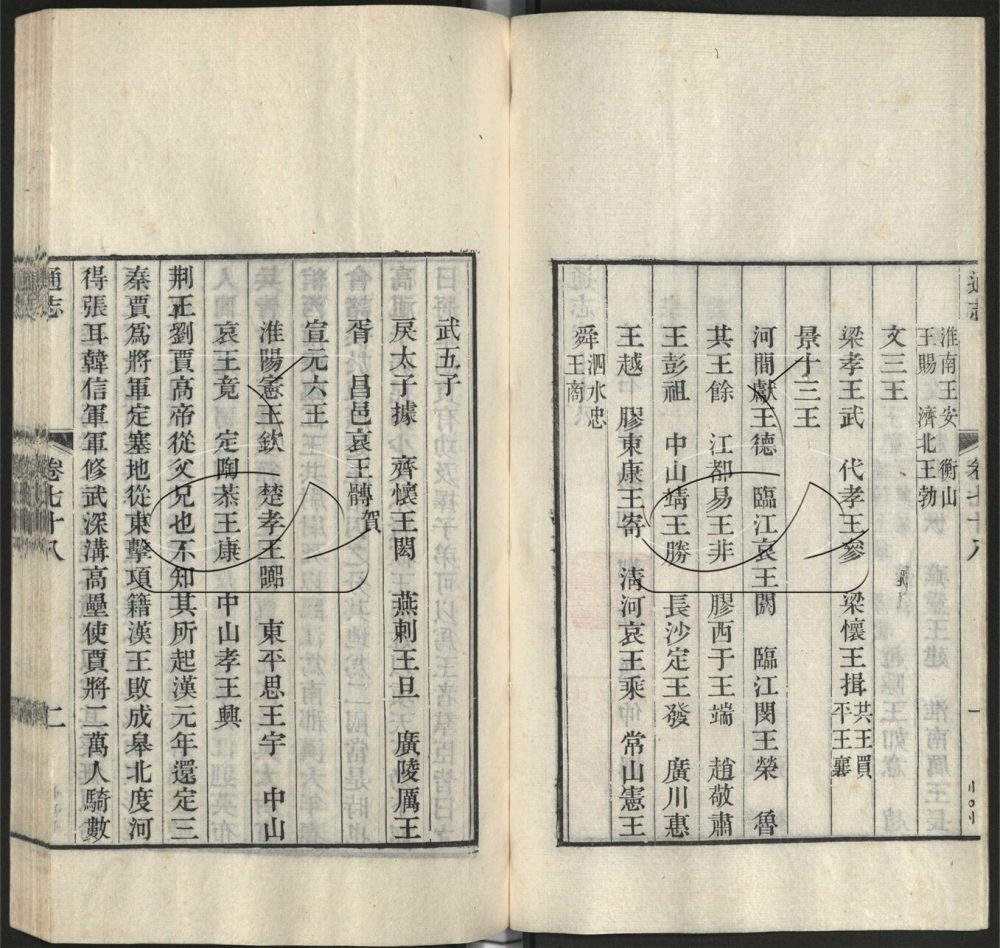 通志
卷七十八
一
淮南王安　衡山
王賜　濟北王勃
文三王
梁孝王武　代孝王參　梁懷王揖共王買
平王襄
景十三王
河間獻王德　臨江哀王閼　臨江閔王榮　魯
其王餘　江都易王非　膠西于王端　趙敬肅
王彭祖　中山靖王勝　長沙定王發　廣川惠
王越　膠東康王寄　清河哀王乘　常山憲王
舜泗水忠
王商
武五子
戾太子據　齊懷王閎　燕刺王旦　廣陵厲王
胥　昌邑哀王髆賀
宣元六王
淮陽憲王欽　楚孝王嚻　東平思王宇　中山
哀王竟　定陶恭王康　中山孝王興
荆王劉賈高帝從父兄也不知其所起漢元年還定三
秦賈爲將軍定塞地從東擊項籍漢王敗成皋北度河
得張耳韓信軍軍修武深溝高壘使賈將二萬人騎數
通志
卷七十八
二